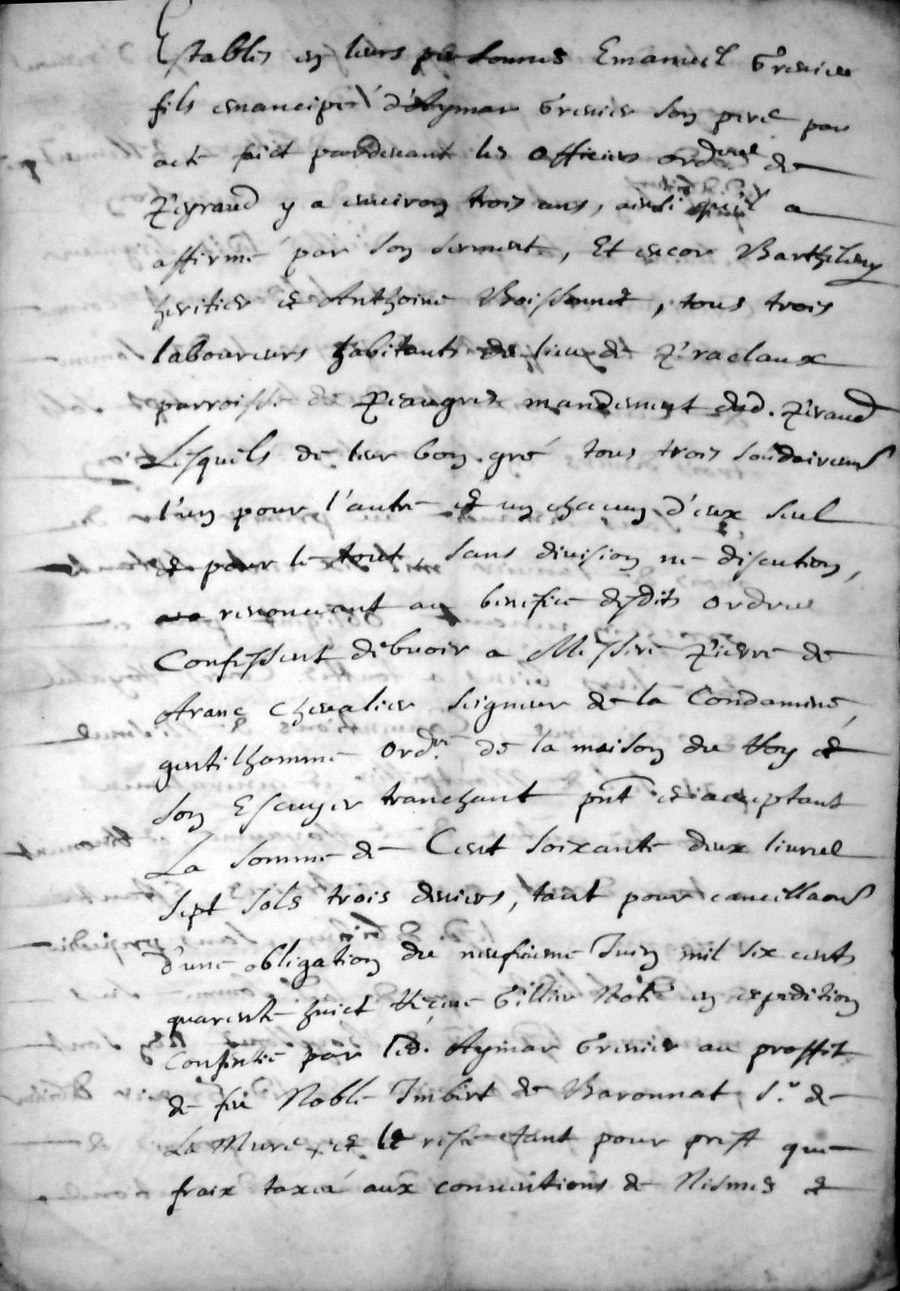 Establis en leurs personnes Emanuel Grenier
fils emancipé d'Aymar Grenier son pere par
acte faict pardevant les officiers ordres de
Peyraud y a environ trois ans, ainsi quil a
affirme par son serment, Et encor Barthelemy
heritier et Anthoine Boissonnet, tous trois
laboureurs habitants du lieu de Piraclaux
parroisse de Peaugres mandement dud. Peraud
Lesquels de leur bon gré tous trois
l'un pour l'autre et un chacun d'eux seul
et pour le tout, sans division ne discution,
renonceant au benefice desdits ordre
Confessent debvoir a Messire Pierre de
chevalier seigneur de la Condamine,
gentilhomme ordre. de la maison du Roy et
son Escuyer tranchant pnt et acceptant
La somme de Cent soixante deux livres
sept sols trois deniers, tant pour
d'une obligation du neufieme Juin mil six cents
quarente huict Reçue Gillier Notre en expedition
Consentie par led. Aymar Grenier au proffit
de feu Noble Imbert de Baronnat, Sr. de
La Mure, et le reste estant pour prest que
fraix taxeé aux conventions de Nismes et